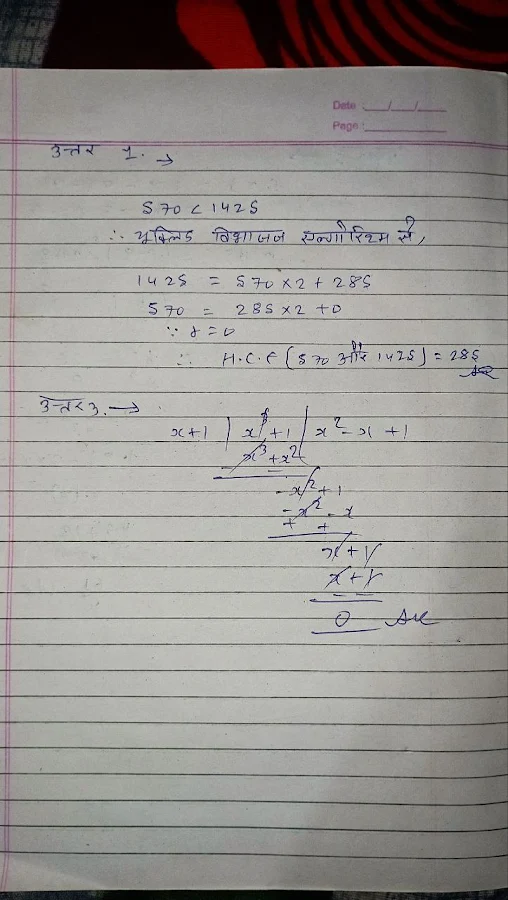 Date __/__/__
Page
उत्तर 1. →
570 < 1425
∴ यूक्लिड विभाजन एल्गोरिथ्म से,
1425 = 570 × 2 + 285
570 = 285 × 2 + 0
∵ r = 0
∴ H.C.F (570 और 1425) = 285
Ans
उत्तर 3. →
x+1 ) x³ + 1 ( x² - x + 1
x³ + x²
- -
- x² + 1
- x² - x
+ +
x + 1
x + 1
- -
0 Ans